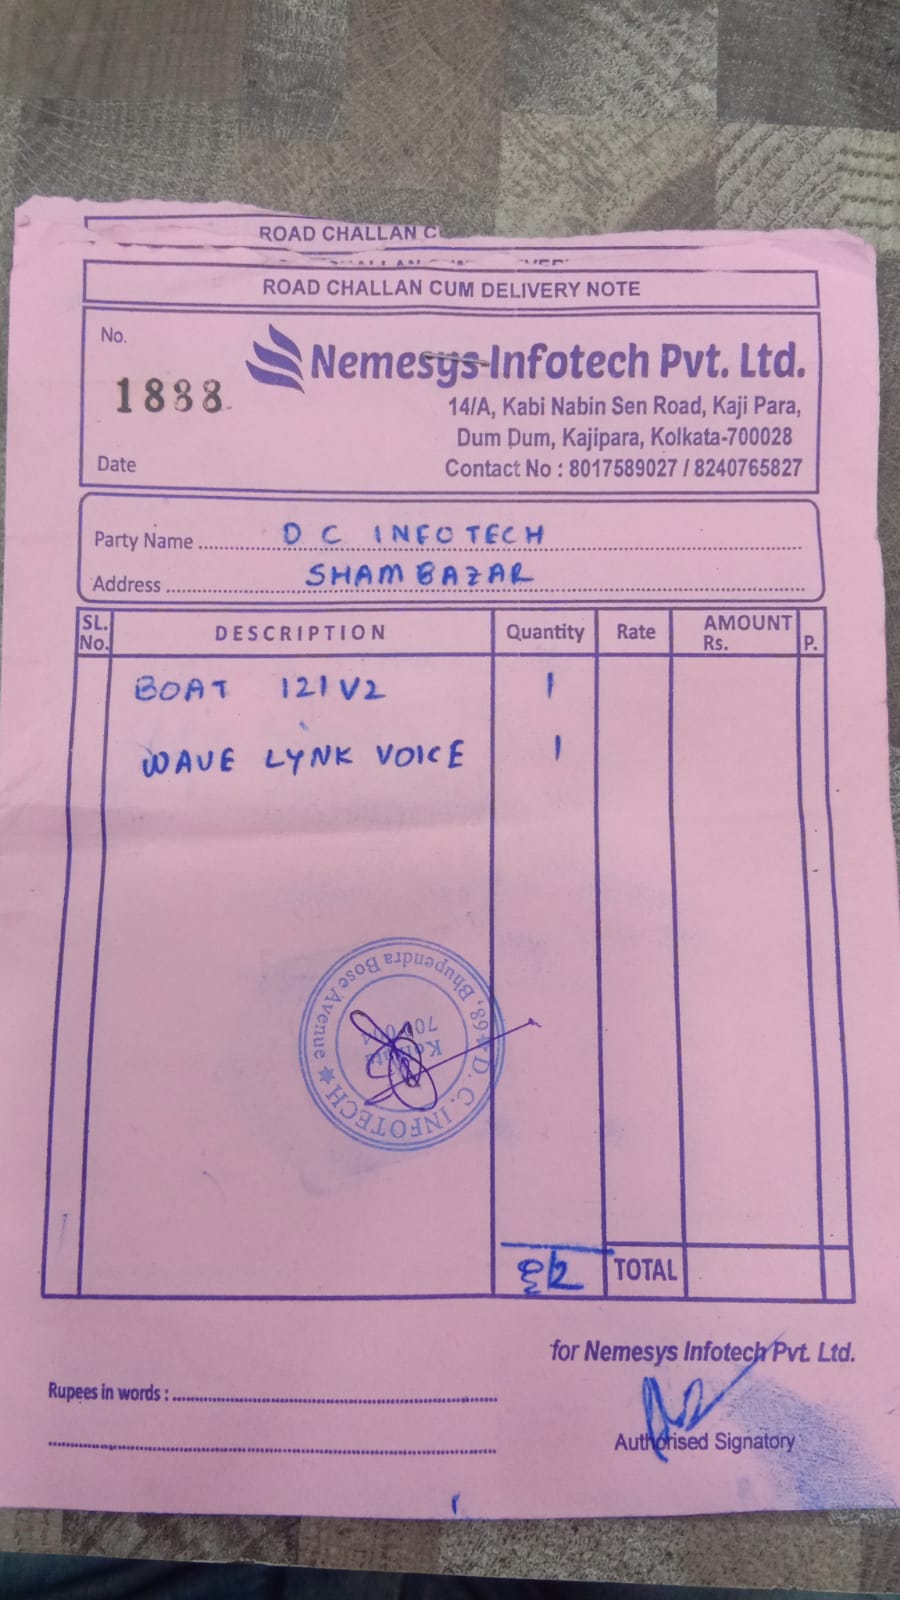 ROAD CHALLAN C
ROAD CHALLAN CUM DELIVERY NOTE
No.
1888
Nemesys Infotech Pvt. Ltd.
14/A, Kabi Nabin Sen Road, Kaji Para,
Dum Dum, Kajipara, Kolkata-700028
Contact No : 8017589027 / 8240765827
Date
Party Name D C INFOTECH
Address SHAM BAZAR
SL. No. DESCRIPTION Quantity Rate AMOUNT Rs. P.
BOAT 121V2 1
WAVE LYNK VOICE 1
D. C. INFOTECH
68, Bhupendra Bose Avenue
Kolkata
2 TOTAL
for Nemesys Infotech Pvt. Ltd.
Rupees in words :
Authorised Signatory